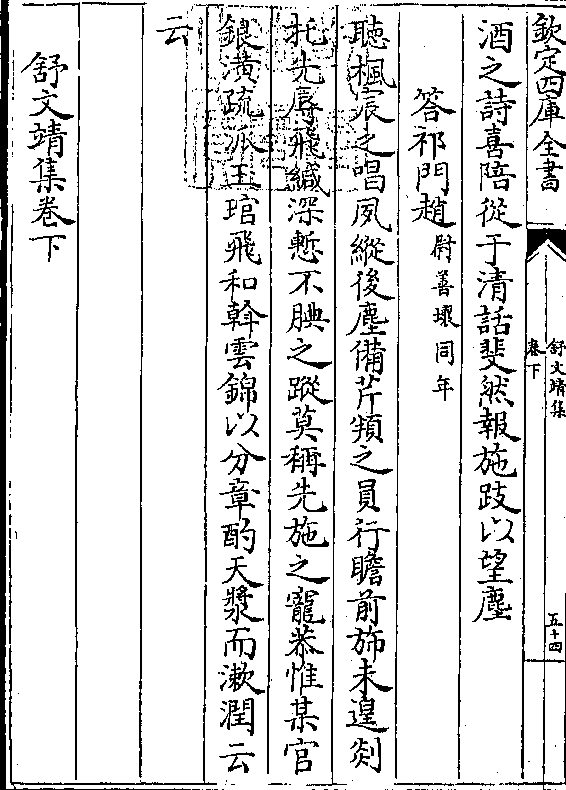 欽定四庫全書
舒文靖集
卷下
五十四
酒之詩喜陪從于清話斐然報施跂以望塵
答祁門趙尉善堁同年
聽楓宸之唱夙縱後塵備芹頖之員行瞻前斾未遑剡
托先辱飛緘深慙不腆之蹤莫稱先施之寵恭惟某官
銀潢疏派玉琯飛和斡雲錦以分章酌天漿而漱潤云
云
舒文靖集卷下